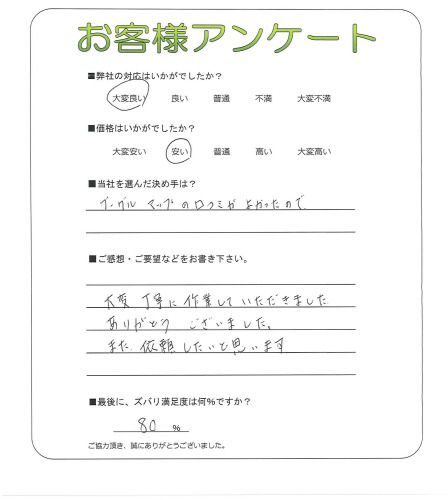 お客様アンケート
■弊社の対応はいかがでしたか?
大変良い 良い 普通 不満 大変不満
■価格はいかがでしたか?
大変安い 安い 普通 高い 大変高い
■当社を選んだ決め手は?
グーグル マップの口コミが よかったので
■ご感想・ご要望などをお書き下さい。
大変 丁寧に 作業して いただきました
ありがとう ございました。
また、依頼したいと思います
■最後に、ズバリ満足度は何%ですか?
80 %
ご協力頂き、誠にありがとうございました。